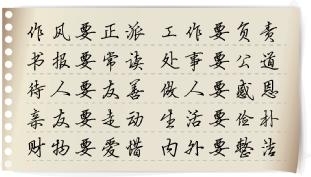 作风要正派 工作要负责
书报要常读 处事要公道
待人要友善 做人要感恩
亲友要走动 生活要俭朴
财物要爱惜 内外要整洁